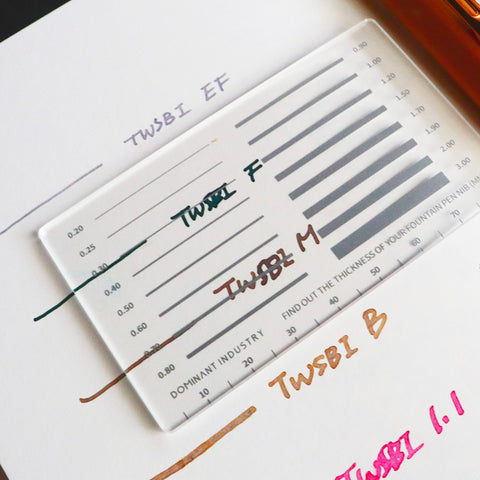 TWSBI EF
0.20
0.25
0.30
0.40
0.50
0.60
0.70
0.80
0.90
1.00
1.20
1.50
1.70
1.90
2.00
3.00
TWSBI F
TWSBI M
DOMINANT INDUSTRY
FIND OUT THE THICKNESS OF YOUR FOUNTAIN PEN NIB (MM
10 20 30 40 50 60 70
TWSBI B
TWSBI 1.1